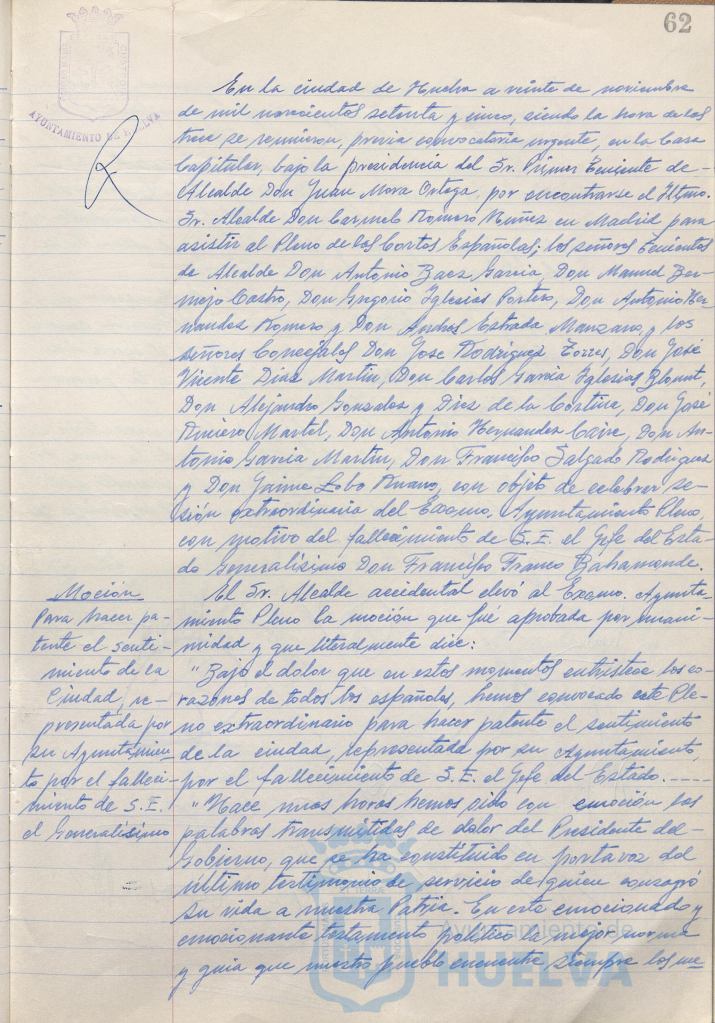 62
AYUNTAMIENTO DE HUELVA
En la ciudad de Huelva a veinte de noviembre
de mil novecientos setenta y cinco, siendo la hora de las
trece se reunieron, previa convocatoria urgente, en la Casa
Capitular, bajo la presidencia del Sr. Primer Teniente de
Alcalde Don Juan Mora Ortega, por encontrarse el Iltmo.
Sr. Alcalde Don Carmelo Romero Núñez en Madrid para
asistir al Pleno de las Cortes Españolas; los señores Tenientes
de Alcalde Don Antonio Baez Garcia, Don Manuel Ber-
mejo Castro, Don Gregorio Iglesias Portero, Don Antonio Her-
nandez Romero y Don Andres Estrada Manzano, y los
señores Concejales Don Jose Rodriguez Torres, Don José
Vicente Diaz Martin, Don Carlos Garcia Iglesias
Don Alejandro Gonzalez y Diez de la Cortina, Don José
Martel, Don Antonio Hernandez Don An-
tonio Garcia Martin, Don Francisco Salgado Rodriguez
y Don Jaime Lobo con objeto de celebrar se-
sión extraordinaria del Excmo. Ayuntamiento Pleno,
con motivo del fallecimiento de S.E. el Gefe del Esta-
do Generalísimo Don Francisco Franco Bahamonde.
El Sr. Alcalde accidental elevó al Excmo. Ayunta-
miento Pleno la moción que fué aprobada por unani-
midad y que literalmente dice:
"Bajo el dolor que en estos momentos entristece los co-
razones de todos los españoles, hemos convocado este Ple-
no extraordinario para hacer patente el sentimiento
de la ciudad, representada por su Ayuntamiento,
por el fallecimiento de S.E. el Gefe del Estado.-----
"Hace unas horas hemos oido con emoción las
palabras transmitidas de dolor del Presidente del
Gobierno, que se ha constituido en portavoz del
último testimonio de servicio de quien consagró
su vida a nuestra Patria. En este emocionado y
emocionante testamento político la mejor norma
y guia que nuestro pueblo encuentre siempre los me-
Moción
Para hacer pa-
tente el senti-
miento de la
Ciudad, re-
presentada por
su Ayuntamien-
to por el falleci-
miento de S.E.
el Generalísimo
Ayuntamiento de
HUELVA